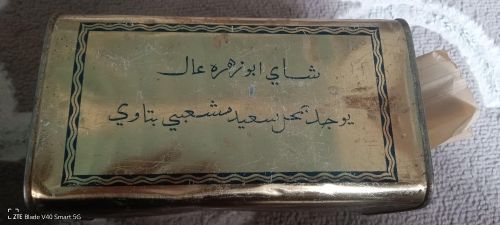 شاي ابو زهره عال
يوجد بمحل سعيد مشعبي بتاوي
ZTE Blade V40 Smart 5G